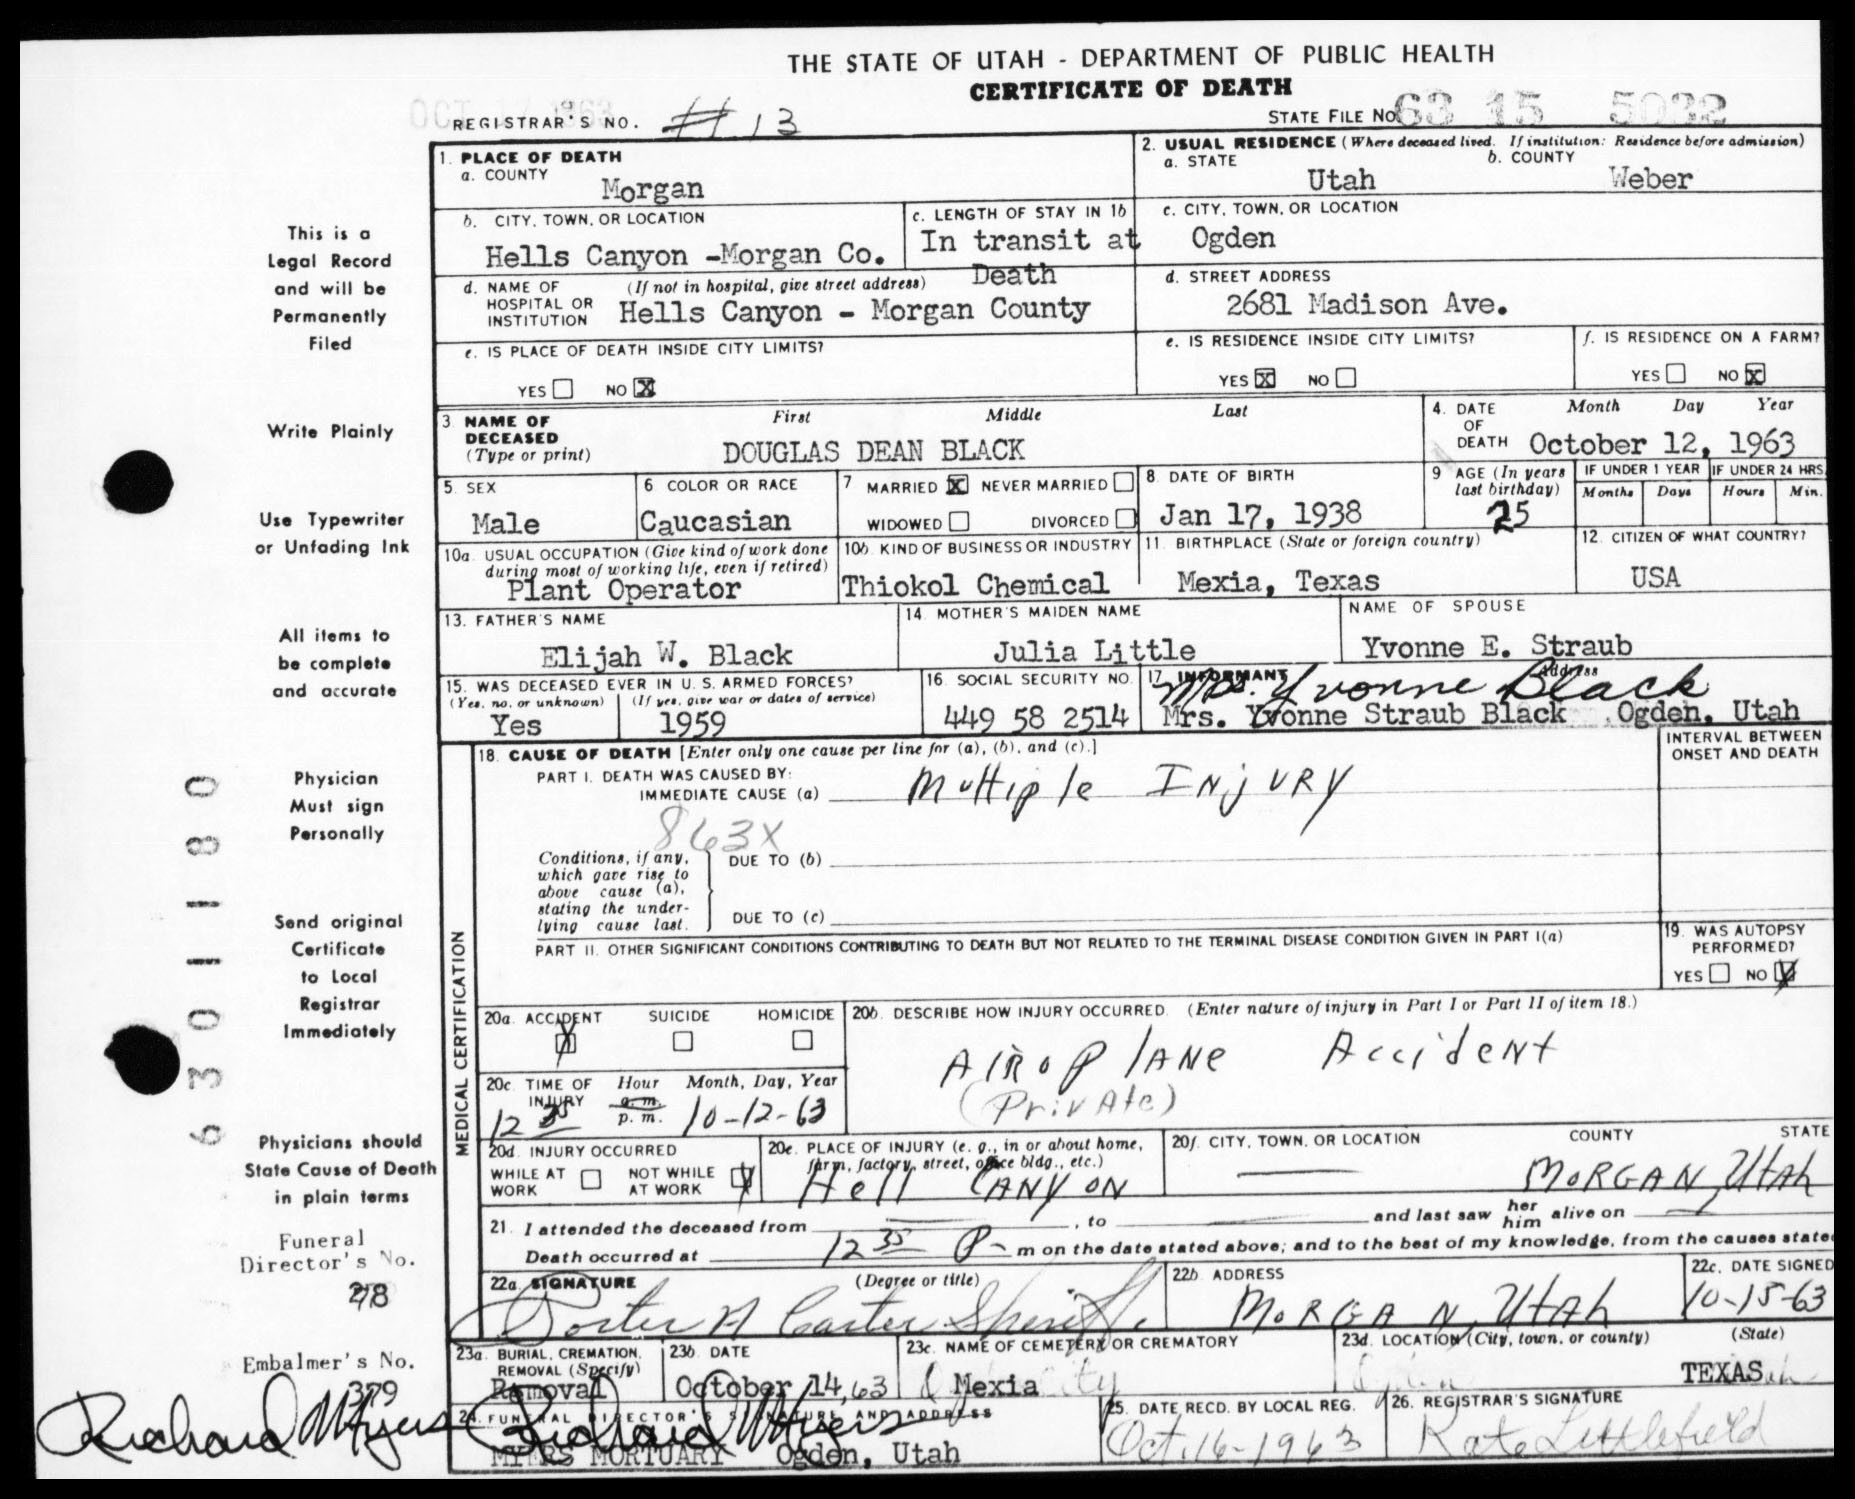 THE STATE OF UTAH - DEPARTMENT OF PUBLIC HEALTH
CERTIFICATE OF DEATH
OCT 17 1963
REGISTRAR'S NO. #13
STATE FILE NO. 63 15 5032
This is a
Legal Record
and will be
Permanently
Filed
Write Plainly
Use Typewriter
or Unfading Ink
All items to
be complete
and accurate
Physician
Must sign
Personally
Send original
Certificate
to Local
Registrar
Immediately
Physicians should
State Cause of Death
in plain terms
Funeral
Director's No.
278
Embalmer's No.
379
Richard Myers
6301180
1. PLACE OF DEATH
a. COUNTY
Morgan
b. CITY, TOWN, OR LOCATION
Hells Canyon -Morgan Co.
c. LENGTH OF STAY IN 1b
In transit at
Death
d. NAME OF HOSPITAL OR INSTITUTION (If not in hospital, give street address)
Hells Canyon - Morgan County
e. IS PLACE OF DEATH INSIDE CITY LIMITS?
YES NO X
2. USUAL RESIDENCE (Where deceased lived. If institution: Residence before admission)
a. STATE
Utah
b. COUNTY
Weber
c. CITY, TOWN, OR LOCATION
Ogden
d. STREET ADDRESS
2681 Madison Ave.
e. IS RESIDENCE INSIDE CITY LIMITS?
YES X NO
f. IS RESIDENCE ON A FARM?
YES NO X
3 NAME OF DECEASED (Type or print)
First Middle Last
DOUGLAS DEAN BLACK
4. DATE OF DEATH
Month Day Year
October 12, 1963
5. SEX
Male
6 COLOR OR RACE
Caucasian
7 MARRIED X NEVER MARRIED
WIDOWED DIVORCED
8. DATE OF BIRTH
Jan 17, 1938
9 AGE (In years last birthday)
25
IF UNDER 1 YEAR
Months Days
IF UNDER 24 HRS.
Hours Min.
10a. USUAL OCCUPATION (Give kind of work done during most of working life, even if retired)
Plant Operator
10b. KIND OF BUSINESS OR INDUSTRY
Thiokol Chemical
11. BIRTHPLACE (State or foreign country)
Mexia, Texas
12. CITIZEN OF WHAT COUNTRY?
USA
13. FATHER'S NAME
Elijah W. Black
14. MOTHER'S MAIDEN NAME
Julia Little
NAME OF SPOUSE
Yvonne E. Straub
15. WAS DECEASED EVER IN U. S. ARMED FORCES?
(Yes, no, or unknown) (If yes, give war or dates of service)
Yes 1959
16. SOCIAL SECURITY NO.
449 58 2514
17 INFORMANT Address
Mrs. Yvonne Black
Mrs. Yvonne Straub Black Ogden, Utah
MEDICAL CERTIFICATION
18. CAUSE OF DEATH [Enter only one cause per line for (a), (b), and (c).]
INTERVAL BETWEEN ONSET AND DEATH
PART I. DEATH WAS CAUSED BY:
IMMEDIATE CAUSE (a) Multiple Injury
863X
Conditions, if any, which gave rise to above cause (a), stating the underlying cause last.
DUE TO (b)
DUE TO (c)
PART II. OTHER SIGNIFICANT CONDITIONS CONTRIBUTING TO DEATH BUT NOT RELATED TO THE TERMINAL DISEASE CONDITION GIVEN IN PART I(a)
19. WAS AUTOPSY PERFORMED?
YES NO X
20a. ACCIDENT SUICIDE HOMICIDE
X
20b. DESCRIBE HOW INJURY OCCURRED. (Enter nature of injury in Part I or Part II of item 18.)
Airoplane Accident
(Private)
20c. TIME OF INJURY Hour Month, Day, Year
12 35 a.m. p.m. 10-12-63
20d. INJURY OCCURRED
WHILE AT WORK NOT WHILE AT WORK
20e. PLACE OF INJURY (e. g., in or about home, farm, factory, street, office bldg., etc.)
Hell Canyon
20f. CITY, TOWN, OR LOCATION COUNTY STATE
Morgan, Utah
21. I attended the deceased from , to and last saw her him alive on
Death occurred at 12 35 P m on the date stated above; and to the best of my knowledge, from the causes state
22a. SIGNATURE (Degree or title)
Porter A Carter Sheriff
22b. ADDRESS
Morgan, Utah
22c. DATE SIGNED
10-15-63
23a. BURIAL, CREMATION, REMOVAL (Specify)
Removal
23b. DATE
October 14, 63
23c. NAME OF CEMETERY OR CREMATORY
Mexia
23d. LOCATION (City, town, or county) (State)
TEXAS
24. FUNERAL DIRECTOR'S SIGNATURE AND ADDRESS
Richard Myers
MYERS MORTUARY Ogden, Utah
25. DATE RECD. BY LOCAL REG.
Oct. 16-1963
26. REGISTRAR'S SIGNATURE
Kate Littlefield